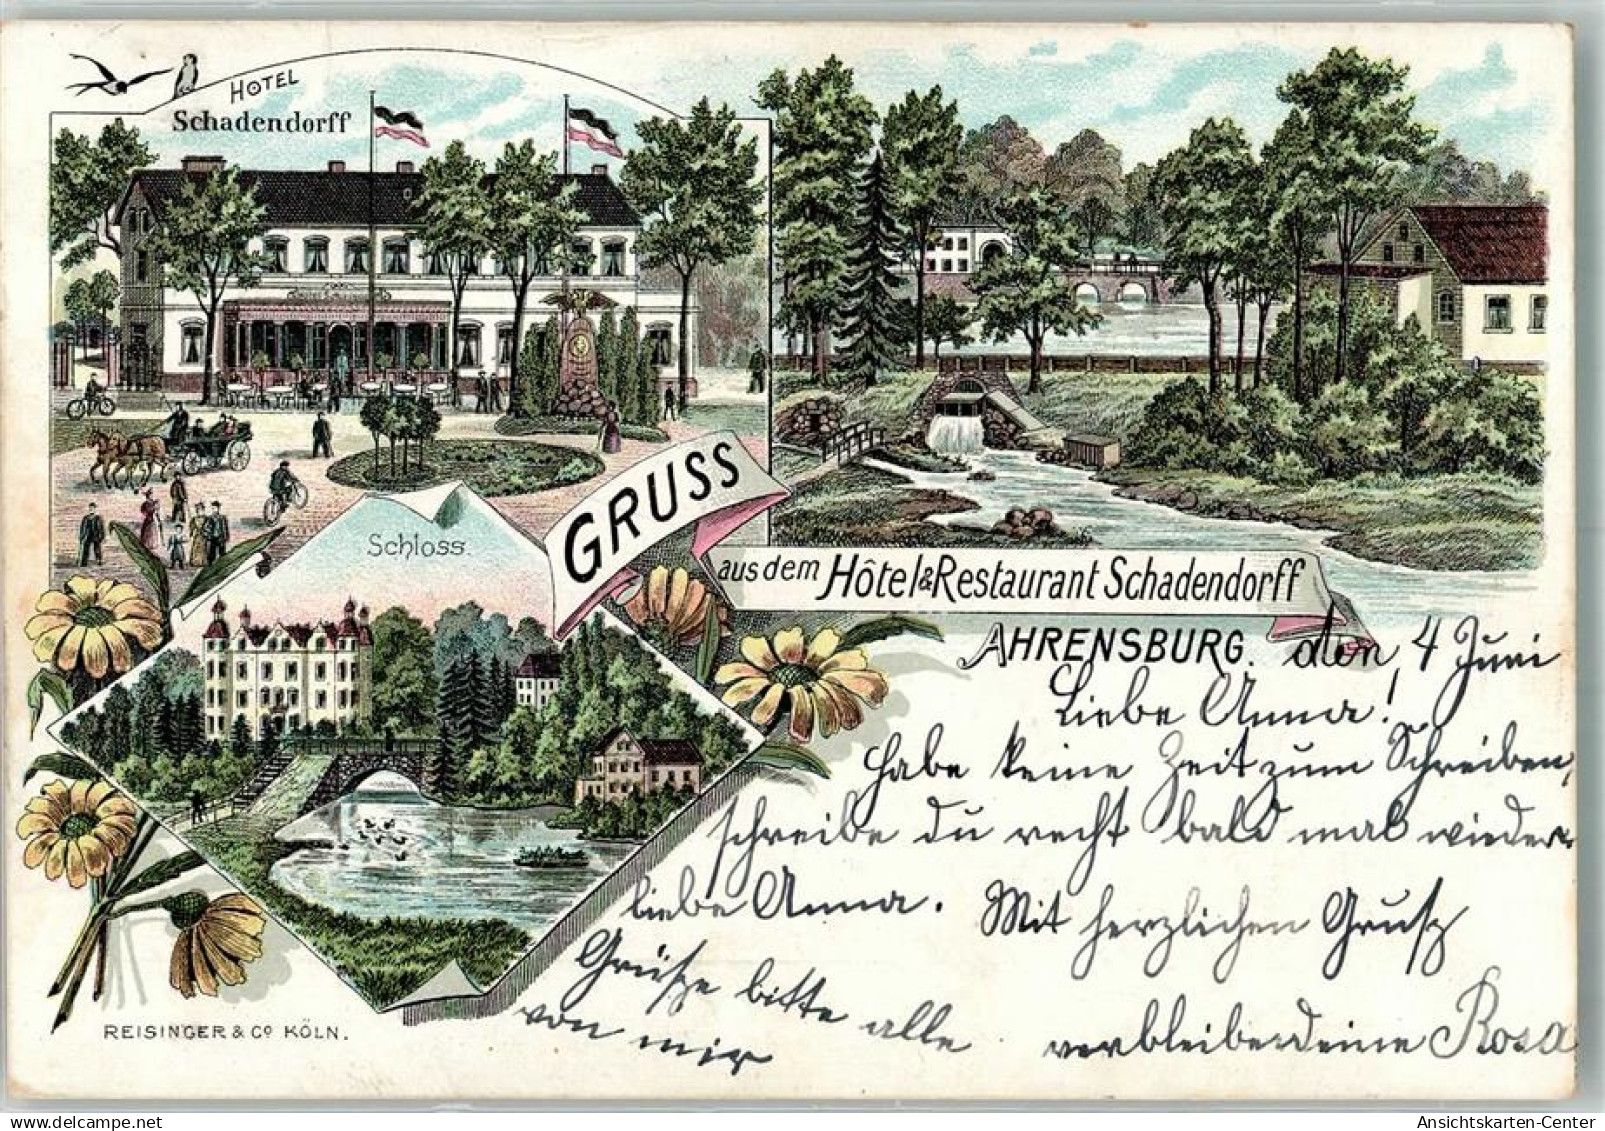 HOTEL
Schadendorff
Schloss.
GRUSS
aus dem Hôtel & Restaurant Schadendorff
AHRENSBURG. den 4 Juni
Liebe Anna!
Habe keine Zeit zum Schreiben,
schreibe du recht bald mal wieder
liebe Anna. Mit herzlichen Grusz
Grüsze bitte alle
von mir
verbleibe deine Rosa
REISINGER & Co KÖLN.
www.delcampe.net
Ansichtskarten-Center